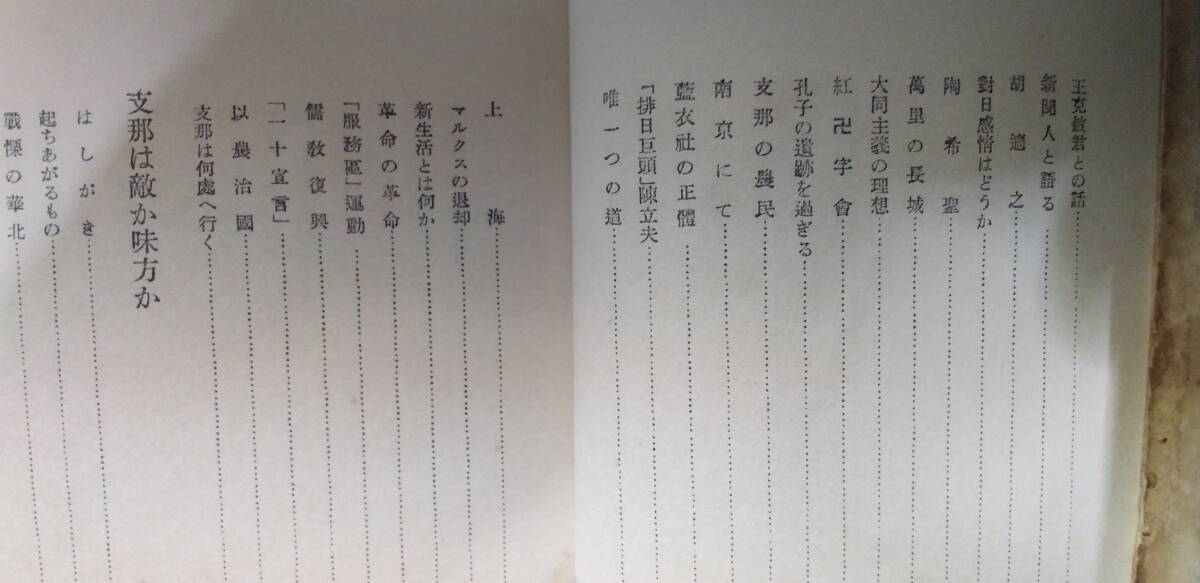 王克敏君との話
新聞人と語る
胡適之
對日感情はどうか
陶希聖
萬里の長城
大同主義の理想
紅卍字會
孔子の遺跡を過ぎる
支那の農民
南京にて
藍衣社の正體
「排日巨頭」陳立夫
唯一つの道
上海
マルクスの退却
新生活とは何か
革命の革命
「服務區」運動
儒敎復興
「一十宣言」
以農治國
支那は何處へ行く
支那は敵か味方か
はしがき
起ちあがるもの
戰慄の華北